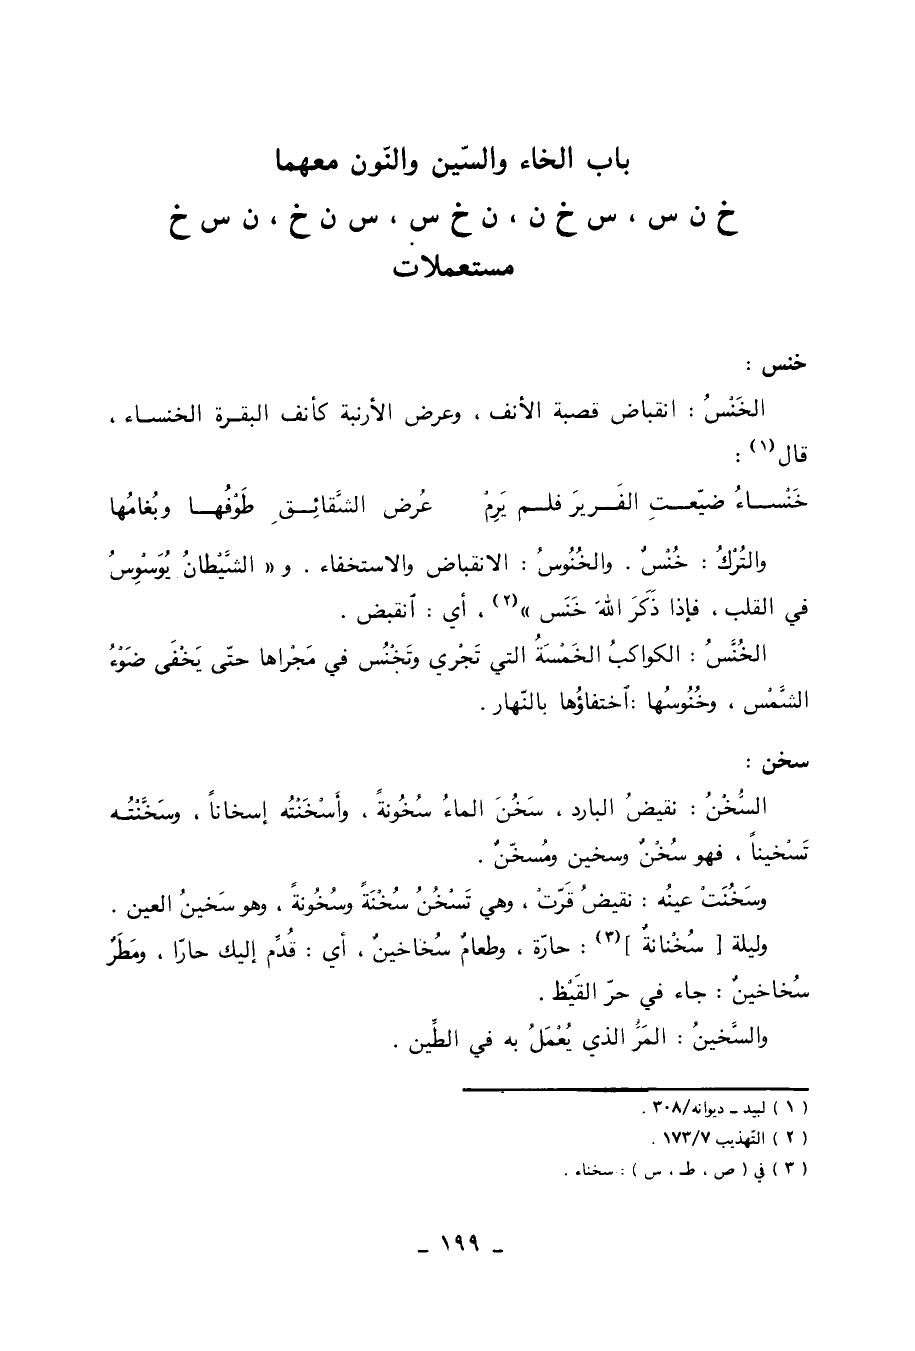 باب الخاء والسّين والنّون معهما
خ ن س ، س خ ن ، ن خ س ، س ن خ ، ن س خ
مستعملات
خنس :
الخَنْسُ : انقباض قصبة الأنف ، وعرض الأرنبة كأنف البقـرة الخنسـاء ،
قال(١) :
خَنْسـاءُ ضيّعـتِ الفَـريرَ فلـم يَرِمْ عُرض الشَّقائِـقِ طَوْفُهـا وبُغامُها
والتُرْكُ : خُنْسٌ . والخُنُوسُ : الانقباض والاستخفاء . و « الشَّيْطانُ يُوَسْوِسُ
في القلب ، فإذا ذَكَرَ اللهَ خَنَس »(٢) ، أي : ٱنقبض .
الخُنَّسُ : الكواكبُ الخَمْسَةُ التي تَجْري وتَخْنُس في مَجْراها حتّى يَخْفَى ضَوْءُ
الشَّمْس ، وخُنُوسُها :ٱختفاؤُها بالنّهار .
سخن :
السُّخْنُ : نقيضُ البارد ، سَخُنَ الماءُ سُخُونةً ، وأَسْخَنْتُه إسخاناً ، وسَخَّنْتُـه
تَسْخيناً ، فهو سُخْنٌ وسخين ومُسخّنٌ .
وسَخُنَتْ عينُه : نقيضُ قَرّتْ ، وهي تَسْخُنُ سُخْنَةً وسُخُونةً ، وهو سَخينُ العين .
وليلة [ سُخْنانةٌ ](٣) : حارّة ، وطعامٌ سُخاخينٌ ، أي : قُدِّم إليك حارّا ، ومَطَرٌ
سُخاخينٌ : جاء في حرّ القَيْظ .
والسَّخينُ : المَرُّ الذي يُعْمَلُ به في الطِّين .
( ١ ) لبيد ـ ديوانه/٣٠٨ .
( ٢ ) التهذيب ١٧٣/٧ .
( ٣ ) في ( ص ، ط ، س ) : سخناء .
ـ ١٩٩ ـ